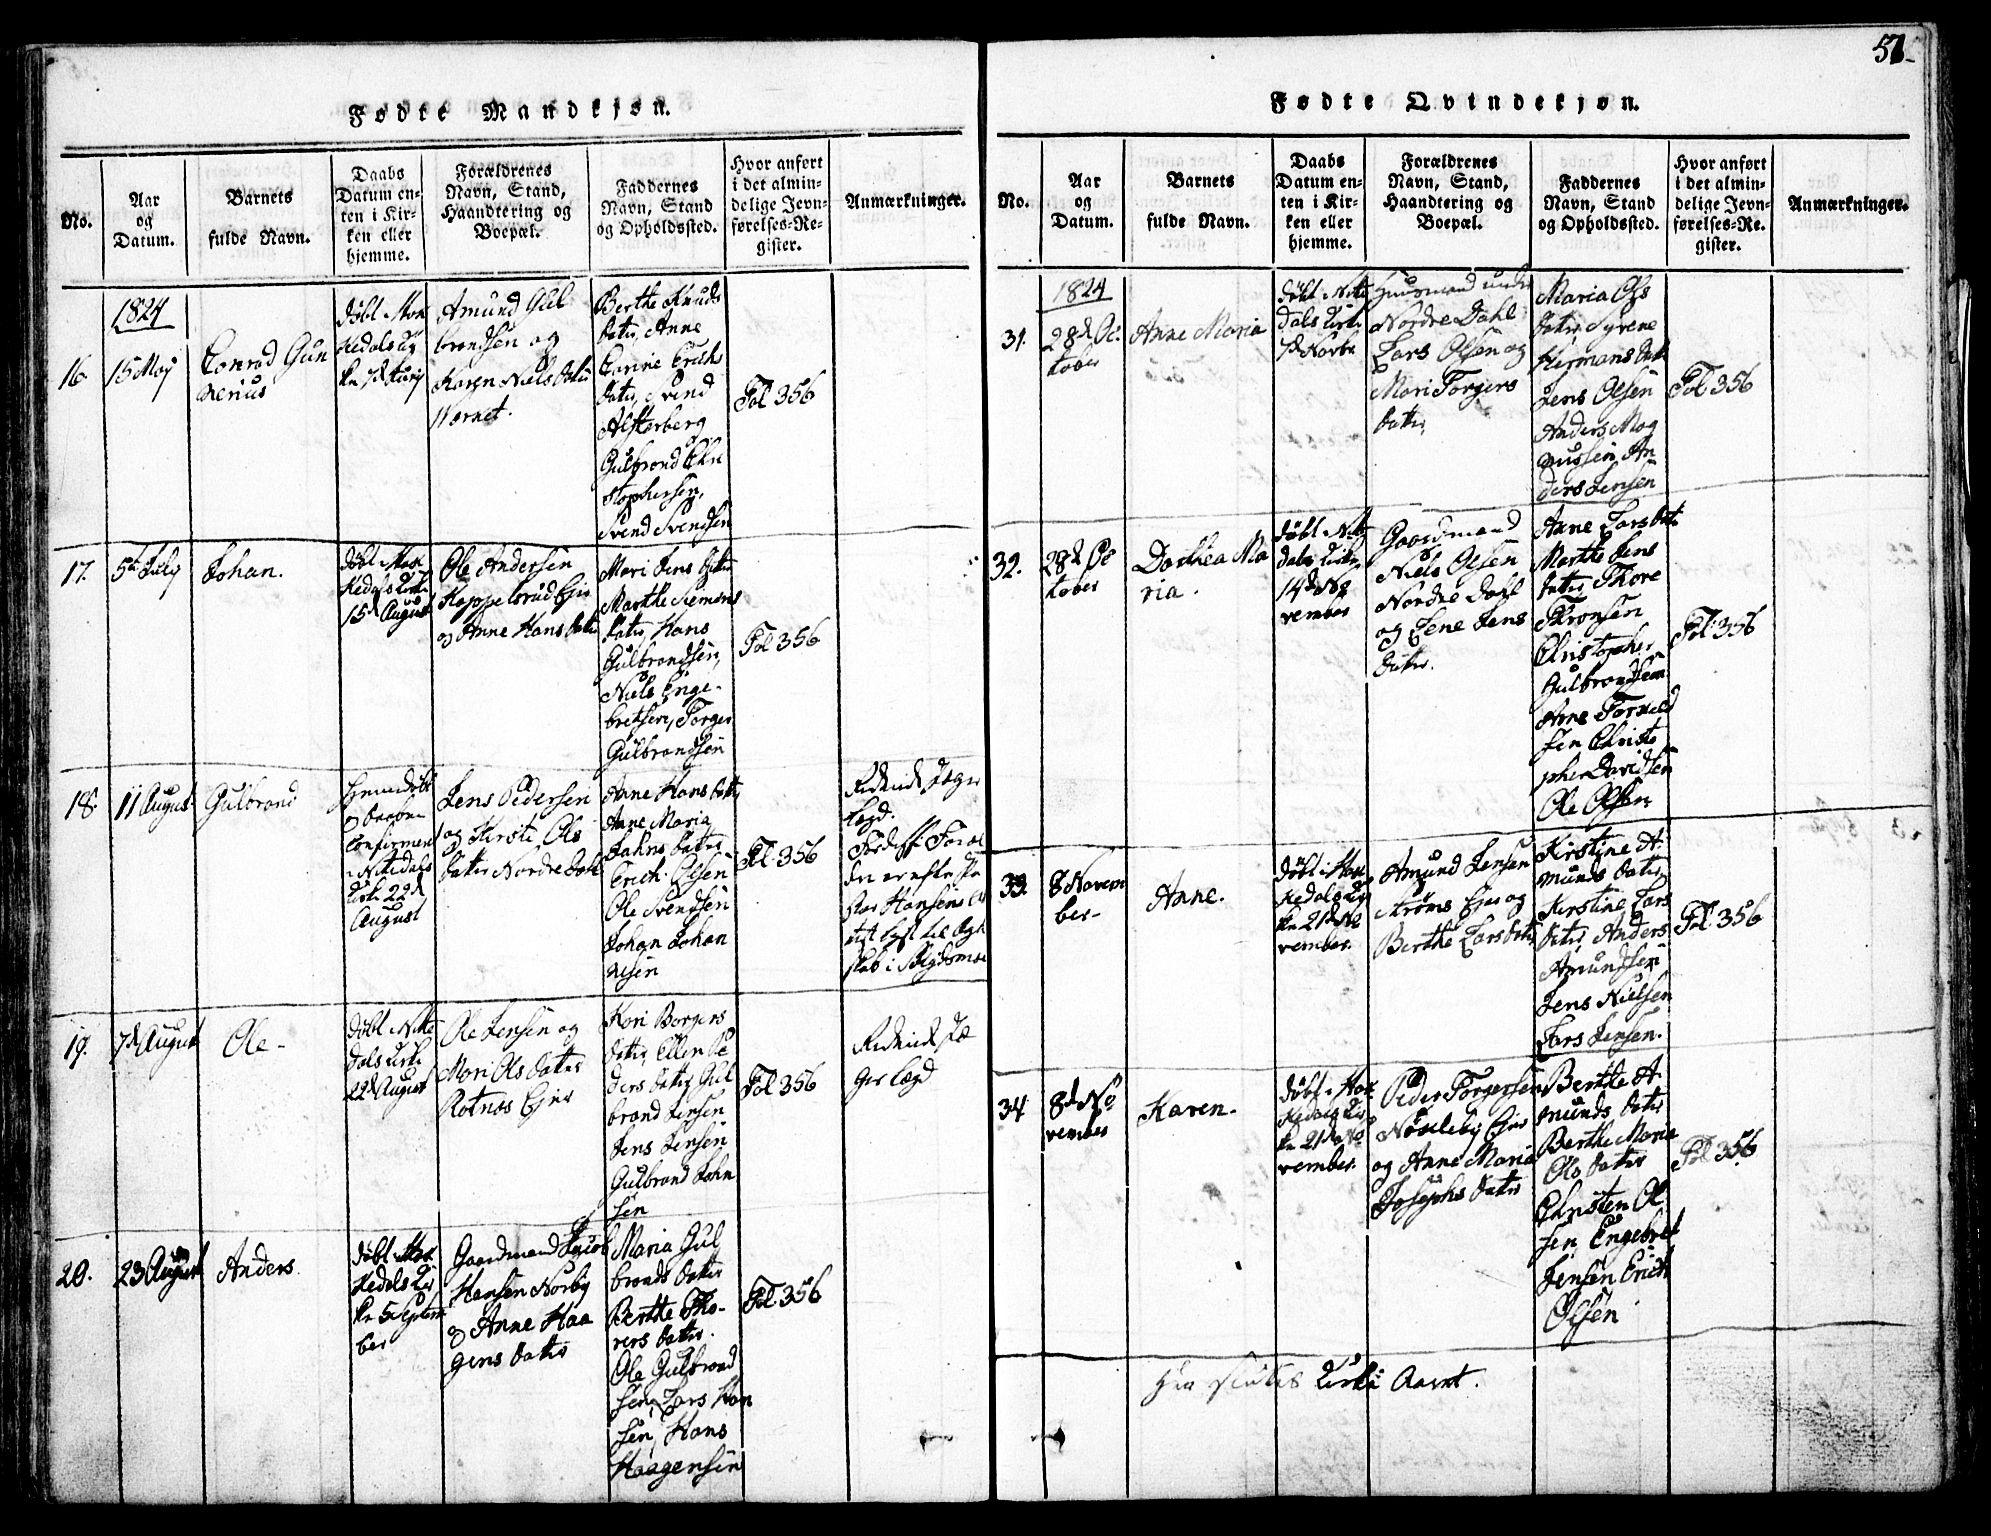 51
Fødte Mandkjøn.
No.
Aar
og
Datum.
Barnets
fulde Navn.
Daabs
Datum en-
ten i Kir-
ken eller
hjemme.
Forældrenes
Navn, Stand,
Haandtering og
Boepæl.
Faddernes
Navn, Stand
og Opholdssted.
Hvor anført
i det almin-
delige Jevn-
førelses-Re-
gister.
Anmærkninger.
1824
16
15 Maj
Conrad Gun
nerius
døbt i Hak
kedals
Amund Gul
brandsen og
Karen Niels datter
Berthe Knuds
datter, Anne
Carine Erichs
datter, Svend
Alsterberg
Gulbrand Chri
stophersen,
Svend Svendsen
Fol 356
17.
5te July
Johan.
døbt i Hak
kedals Kirke
15d August
Ole Andersen
Kappelsrud Ejer
og Anne Hans datter
Mari Jens datter
Marthe Siemens
datter, Hans
Gulbrandsen,
Niels Enge-
bretsen, Torger
Gulbrandsen
Fol 356
18.
11 August
Gulbrand
hjemmedøbt
og daaben
confirmert
i Nitedals
Kirke 22d
August
Jens Pedersen
og Kirsti Ols
datter Nordre Dahl
Anne Hans datter
Anne Maria
Jahns datter
Erich Olsen
Ole Svendsen
Johan Johan
nesen
Fol. 356
lægd.
19.
7d August
Ole -
døbt i Nitte
dals Kirke
22d August
Ole Jensen og
Mari Ols datter
Rotnæs Ejer
Kari Borgers
datter, Ellen Pe
ders datter, Gul
brand Jensen
Jens Jensen
Gulbrand John
sen
Fol 356
ger lægd
20.
23 August
Anders
døbt i Hak
kedals Kir
ke 5 Septem
ber
Gaardmand Jacob
Hansen Norby
og Anne Haa
gens datter
Maria Gul
brands datter
Berthe Tho-
rers datter.
Ole Gulbrand
sen, Lars Han
sen, Hans
Haagensen
Fol. 356
Fødte Qvindekjøn.
No.
Aar
og
Datum.
Barnets
fulde Navn.
Daabs
Datum en-
ten i Kir-
ken eller
hjemme.
Forældrenes
Navn, Stand,
Haandtering og
Boepæl.
Faddernes
Navn, Stand
og Opholdssted.
Hvor anført
i det almin-
delige Jevn-
førelses-Re-
gister.
Anmærkninger.
1824
31.
28d Oc-
tober
Anne Maria
døbt i Nitte
dals Kirke
7d Novbr
Huusmand under
Nordre Dahl
Lars Olsen og
Mari Torgers
datter,
Maria Ols
datter, Syrene
Hermans datt
Jens Olsen
Anders Mag
nussen, An
ders Jensen
Fol 356
32.
28d Oc
tober
Dorthea Ma
ria.
døbt i Nitte
dals Kirke
14d No
vember
Gaardmand
Niels Olsen
Nordre Dahl
og Lene Jens
datter.
Anne Lars datter
Marthe Jens
datter, Thore
Thronsen
Christopher
Gulbrandsen
Arne Torkeld
sen Christo
pher Davidsen
Ole Olsen
Fol: 356
33.
8 Novem
ber-
Anne.
døbt i Hak
kedals Kir
ke 21d No
vember.
Amund Jensen
Strøms Ejer og
Berthe Lars datter
Kirstine A-
munds datter,
Kirstine Lars
datter, Anders
Amundsen
Jens Nielsen
Lars Jensen.
Fol: 356
34
8d No
vember
Karen -
døbt i Hak
kedals Kir
ke 21d No
vember.
Peder Torgersen
Nøsleby Ejer
og Anne Maria
Josephs datter
Berthe A-
munds datter
Berthe Maria
Ols datter
Christen Ol
sen, Engebret
Jensen Erich
Olsen
Fol 356
Her sluttes Kirke Aaret.